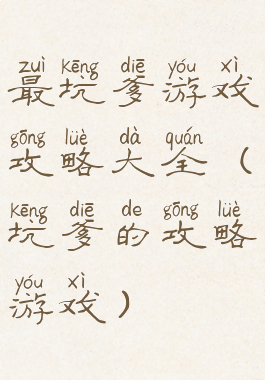 zuì kēng diē yóu xì
最坑爹游戏
gōng lüè dà quán
攻略大全（
kēng diē de gōng lüè
坑爹的攻略
yóu xì
游戏）